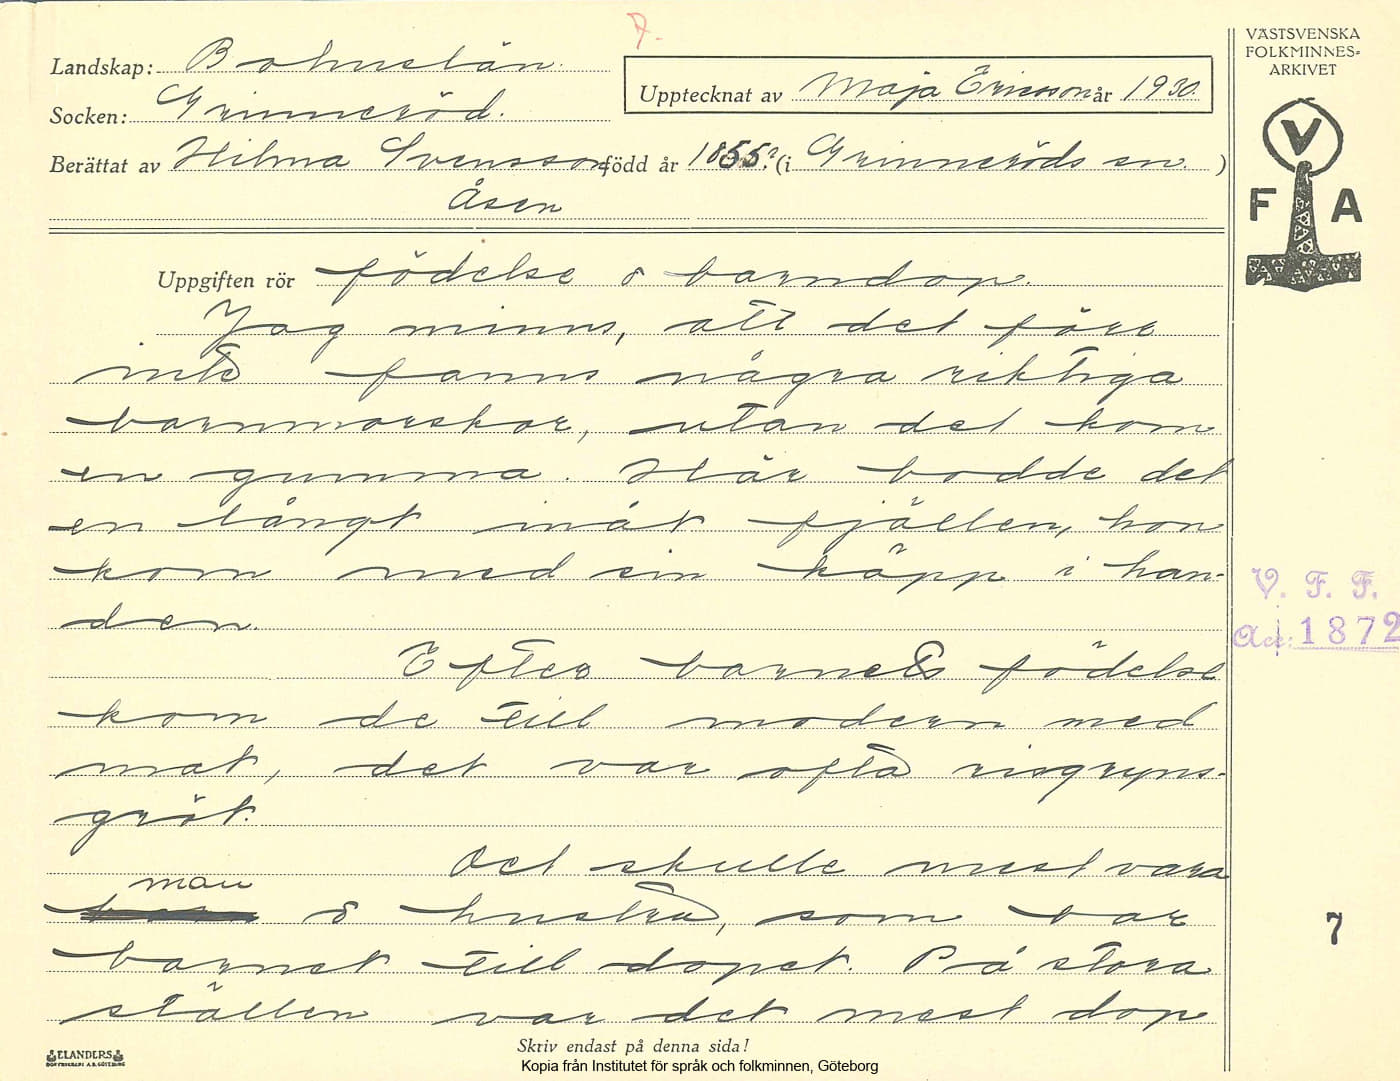 7.
Landskap: Bohuslän.
Socken: Grinneröd.
Upptecknat av Maja Ericsson år 1930.
Berättat av Hilma Svensson född år 1855? (i Grinneröds sn. )
Åsen
VÄSTSVENSKA
FOLKMINNES=
ARKIVET
V
F A
Uppgiften rör födelse o barndop.
Jag minns, att det förr
inte fanns några riktiga
barnmorskor, utan det kom
en gumma. Här bodde det
en långt inåt fjällen, hon
kom med sin käpp i han-
den.
V. F. F.
Acc: 1872
Efter barnets födelse
kom de till modern med
mat, det var ofta risgryns-
gröt.
Det skulle mest vara
man
o hustru, som bar
barnet till dopet. På stora
ställen var det mest dop
7
ELANDERS
BOKTRYCKERI A.B. GÖTEBORG
Skriv endast på denna sida!
Kopia från Institutet för språk och folkminnen, Göteborg